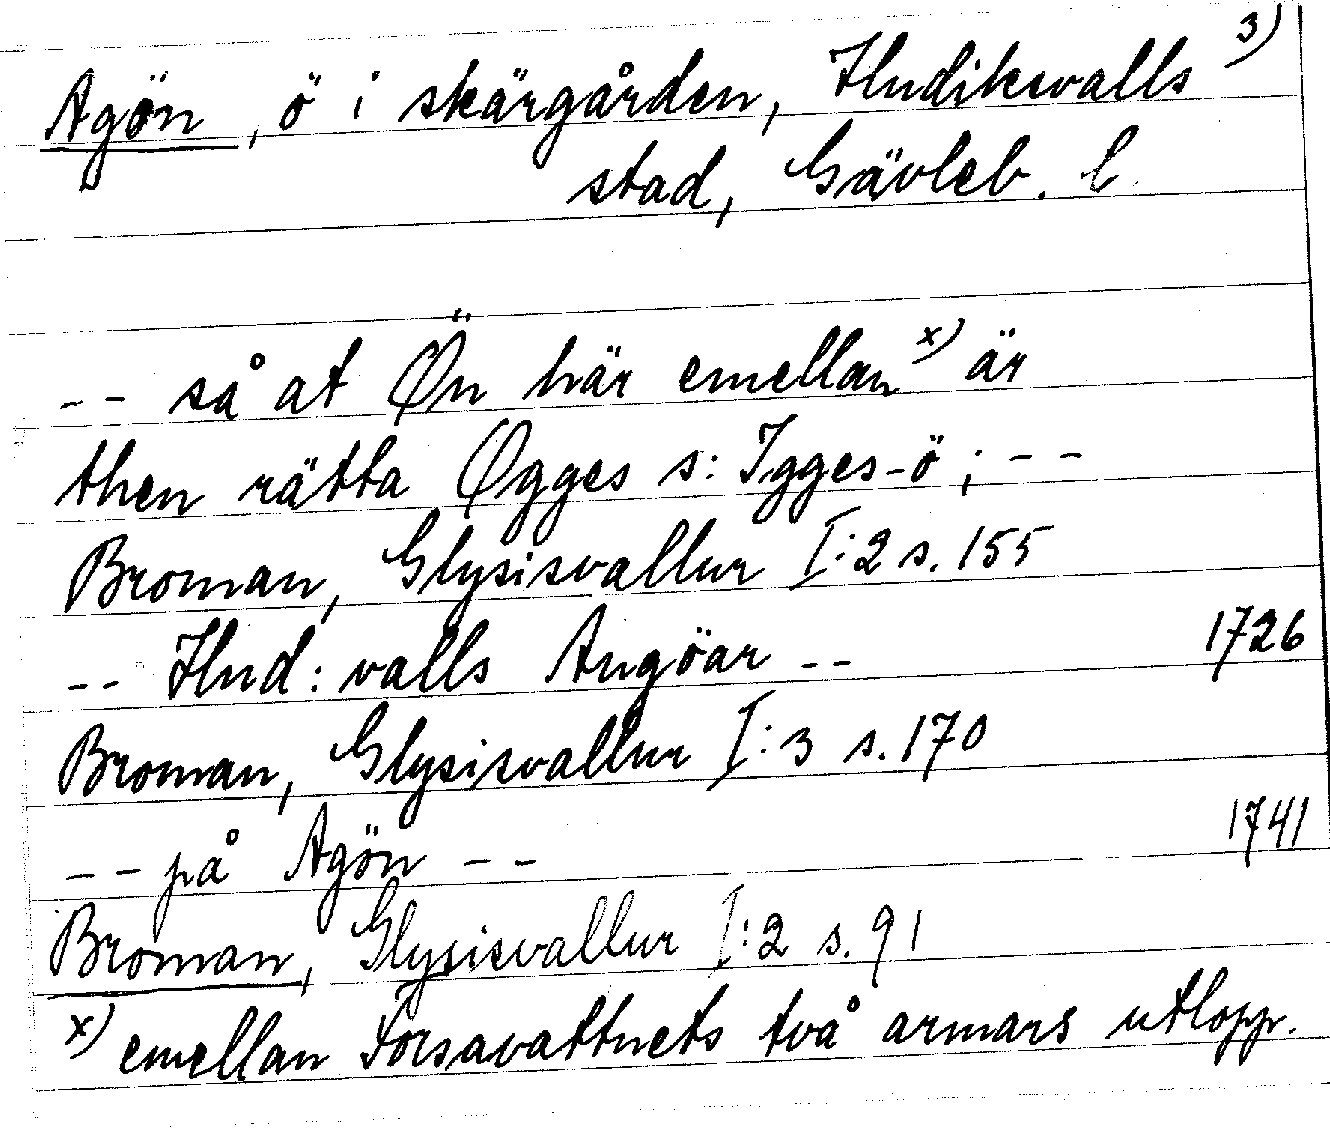 3)
Agön, ö i skärgården, Hudiksvalls
stad, Gävleb. l
-- så at Ön här emellan x) är
then rätta Øgges s: Igges-ö; --
Broman, Glysisvallur I:2 s. 155
-- Hud: valls Angöar -- 1726
Broman, Glysisvallur I:3 s. 170
-- på Agön -- 1741
Broman, Glysisvallur I:2 s. 91
x) emellan Forsavattnets två armars utlopp.